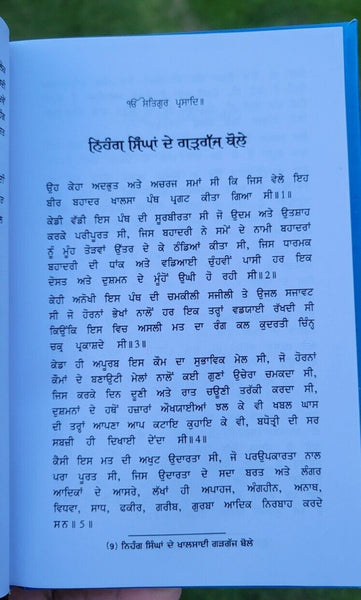 ੴ ਸਤਿਗੁਰ ਪ੍ਰਸਾਦਿ॥
ਨਿਹੰਗ ਸਿੰਘਾਂ ਦੇ ਗੜਗੱਜ ਬੋਲੇ
ਉਹ ਕੇਹਾ ਅਦਭੁਤ ਅਤੇ ਅਚਰਜ ਸਮਾਂ ਸੀ ਕਿ ਜਿਸ ਵੇਲੇ ਇਹ
ਬੀਰ ਬਹਾਦਰ ਖਾਲਸਾ ਪੰਥ ਪ੍ਰਗਟ ਕੀਤਾ ਗਿਆ ਸੀ॥1॥
ਕੇਡੀ ਵੱਡੀ ਇਸ ਪੰਥ ਦੀ ਸੂਰਬੀਰਤਾ ਸੀ ਜੋ ਉਦਮ ਅਤੇ ਉਤਸ਼ਾਹ
ਕਰਕੇ ਪਰੀਪੂਰਤ ਸੀ, ਜਿਸ ਬਹਾਦਰੀ ਨੇ ਸਮੇਂ ਦੇ ਨਾਮੀ ਬਹਾਦਰਾਂ
ਨੂੰ ਮੂੰਹ ਤੋੜਵਾਂ ਉਤਰ ਦੇ ਕੇ ਠੰਡਿਆਂ ਕੀਤਾ ਸੀ, ਜਿਸ ਧਾਰਮਕ
ਬਹਾਦਰੀ ਦੀ ਧਾਂਕ ਅਤੇ ਵਡਿਆਈ ਚੁੰਹਵੀਂ ਪਾਸੀ ਹਰ ਇਕ
ਦੋਸਤ ਅਤੇ ਦੁਸ਼ਮਨ ਦੇ ਮੂੰਹੋਂ ਉਘੀ ਹੋ ਰਹੀ ਸੀ॥2॥
ਕੇਹੀ ਅਨੋਖੀ ਇਸ ਪੰਥ ਦੀ ਚਮਕੀਲੀ ਸਜੀਲੀ ਤੇ ਉਜਲ ਸਜਾਵਟ
ਸੀ ਜੋ ਹੋਰਨਾਂ ਭੇਖਾਂ ਨਾਲੋਂ ਹਰ ਇਕ ਤਰ੍ਹਾਂ ਵਡਯਾਈ ਰੱਖਦੀ ਸੀ
ਕਿਉਂਕਿ ਇਸ ਵਿਚ ਅਸਲੀ ਮਤ ਦਾ ਰੰਗ ਕਲ ਕੁਦਰਤੀ ਚਿੰਨ੍ਹ
ਚਕ੍ਰ ਪ੍ਰਕਾਸ਼ਦੇ ਸੀ॥3॥
ਕੇਡਾ ਹੀ ਅਪੂਰਬ ਇਸ ਕੌਮ ਦਾ ਸੁਭਾਵਿਕ ਮੇਲ ਸੀ, ਜੋ ਹੋਰਨਾਂ
ਕੌਮਾਂ ਦੇ ਬਣਾਉਟੀ ਮੇਲਾਂ ਨਾਲੋਂ ਕਈ ਗੁਣਾਂ ਉਚੇਰਾ ਚਮਕਦਾ ਸੀ,
ਜਿਸ ਕਰਕੇ ਦਿਨ ਦੂਣੀ ਅਤੇ ਰਾਤ ਚਉਣੀ ਤਰੱਕੀ ਕਰਦਾ ਸੀ,
ਦੁਸ਼ਮਨਾਂ ਦੇ ਹਥੋਂ ਹਜ਼ਾਰਾਂ ਔਖਯਾਈਆਂ ਝਲ ਕੇ ਵੀ ਖਬਲ ਘਾਸ
ਦੀ ਤਰ੍ਹਾਂ ਆਪਣਾ ਆਪ ਕਟਾਇ ਕੁਹਾਇ ਕੇ ਵੀ, ਬਧੋਤ੍ਰੀ ਦੀ ਸਰ
ਸਬਜ਼ੀ ਹੀ ਦਿਖਾਈ ਦੇਂਦਾ ਸੀ॥4॥
ਕੈਸੀ ਇਸ ਮਤ ਦੀ ਅਖੁਟ ਉਦਾਰਤਾ ਸੀ, ਜੋ ਪਰਉਪਕਾਰਤਾ ਨਾਲ
ਪਰਾ ਪੂਰਤ ਸੀ, ਜਿਸ ਉਦਾਰਤਾ ਦੇ ਸਦਾ ਬਰਤ ਅਤੇ ਲੰਗਰ
ਆਦਿਕਾਂ ਦੇ ਆਸਰੇ, ਲੱਖਾਂ ਹੀ ਅਪਾਹਜ, ਅੰਗਹੀਨ, ਅਨਾਥ,
ਵਿਧਵਾ, ਸਾਧ, ਫਕੀਰ, ਗਰੀਬ, ਗੁਰਬਾ ਆਦਿਕ ਨਿਰਬਾਹ ਕਰਦੇ
ਸਨ॥5॥
(9) ਨਿਹੰਗ ਸਿੰਘਾਂ ਦੇ ਖਾਲਸਾਈ ਗੜਗੱਜ ਬੋਲੇ